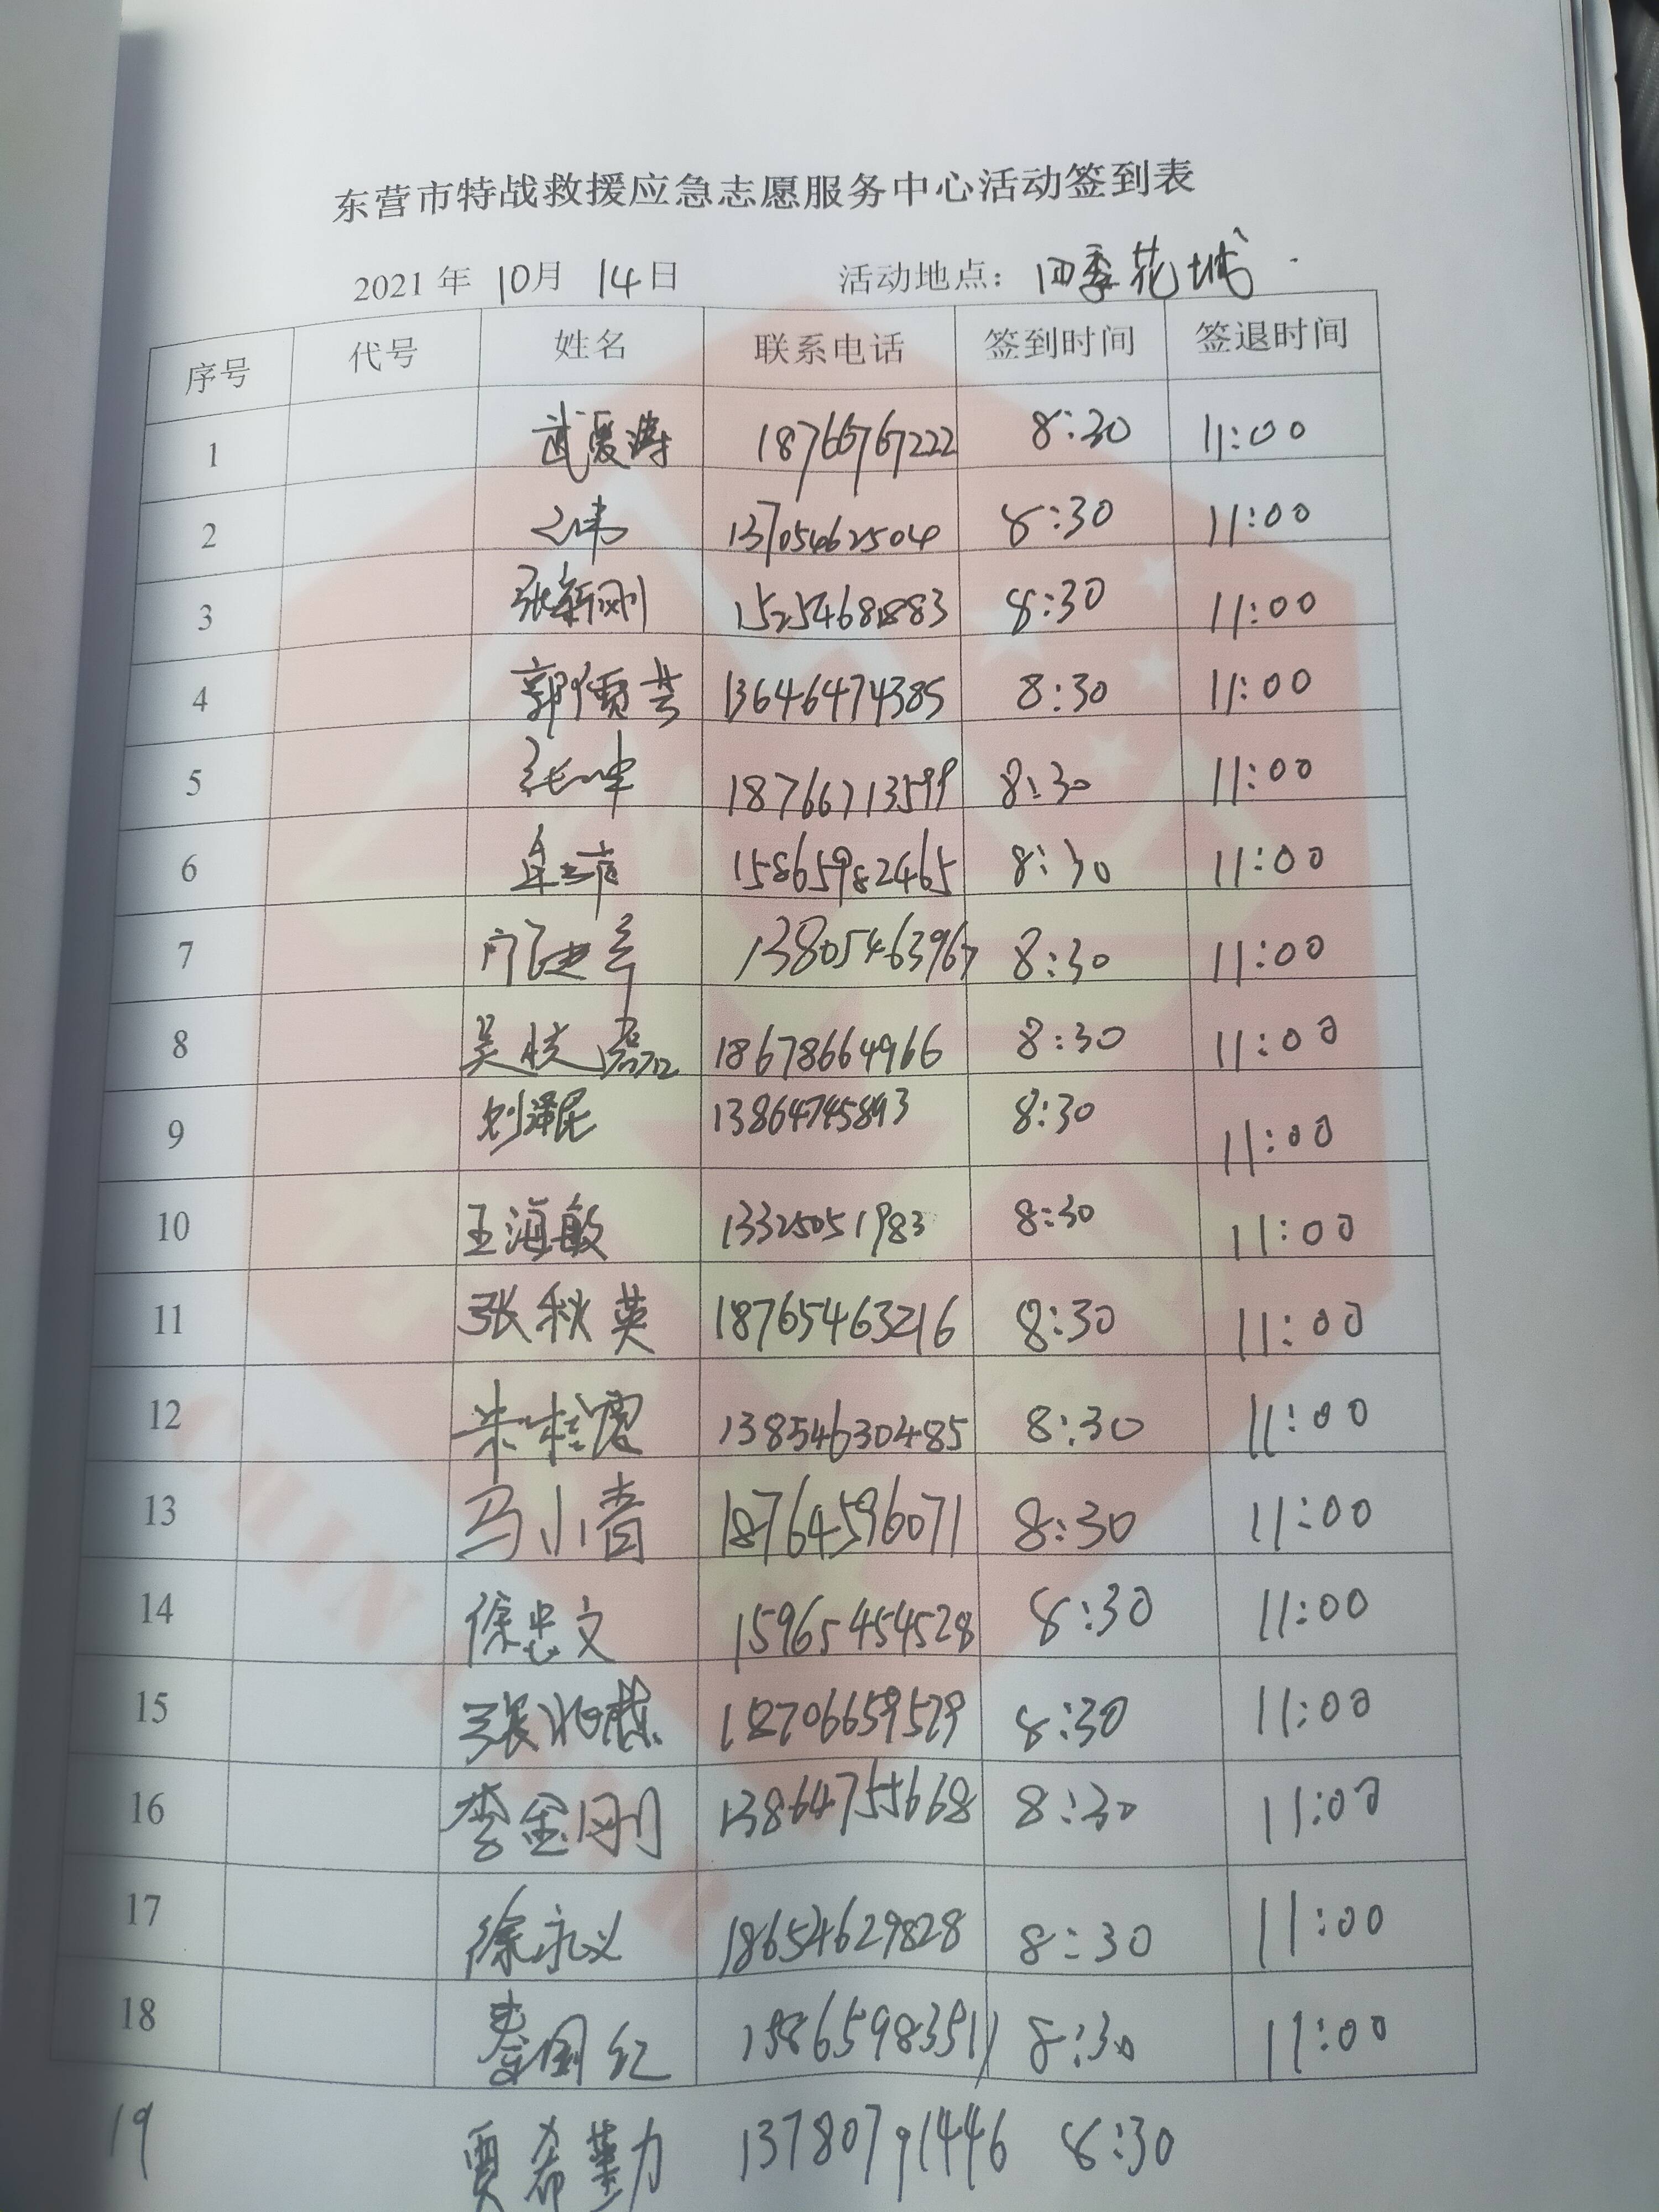 东营市特战救援应急志愿服务中心活动签到表
2021 年 10月 14日 活动地点：四季花城
序号 代号 姓名 联系电话 签到时间 签退时间
1 武爱涛 18766767222 8:30 11:00
2 13705462504 8:30 11:00
3 张新刚 15254681883 8:30 11:00
4 郭儒芸 13646474385 8:30 11:00
5 张坤 18766713599 8:30 11:00
6 15865982465 8:30 11:00
7 13805463967 8:30 11:00
8 吴 18678664966 8:30 11:00
9 刘泽昆 13864745893 8:30 11:00
10 王海敏 13325051983 8:30 11:00
11 张秋英 18765463216 8:30 11:00
12 朱桂霞 13854630485 8:30 11:00
13 马小青 18764596071 8:30 11:00
14 徐忠文 15965454528 8:30 11:00
15 张 18706659579 8:30 11:00
16 李金刚 13864755668 8:30 11:00
17 徐永义 18654629828 8:30 11:00
18 秦国红 15865983511 8:30 11:00
19 贾希勤 13780791446 8:30